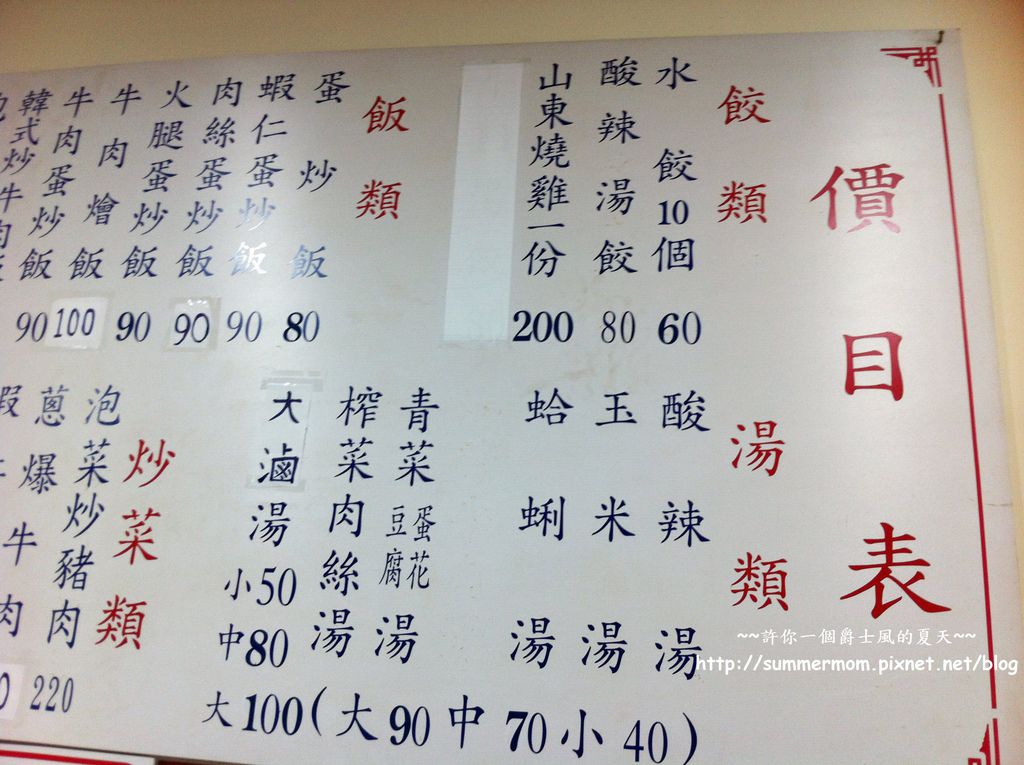 價目表
餃類
水餃10個 60
酸辣湯餃 80
山東燒雞一份 200
飯類
蛋炒飯 80
蝦仁蛋炒飯 90
肉絲蛋炒飯 90
火腿蛋炒飯 90
牛肉燴飯 100
牛肉蛋炒飯 90
韓式炒牛肉
湯類
酸辣湯
玉米湯
蛤蜊湯
青菜蛋花豆腐湯
榨菜肉絲湯
(大90中70小40)
大滷湯
小50
中80
大100
炒菜類
泡菜炒豬肉 220
蔥爆牛肉
蝦
~~許你一個爵士風的夏天~~
http://summermom.pixnet.net/blog